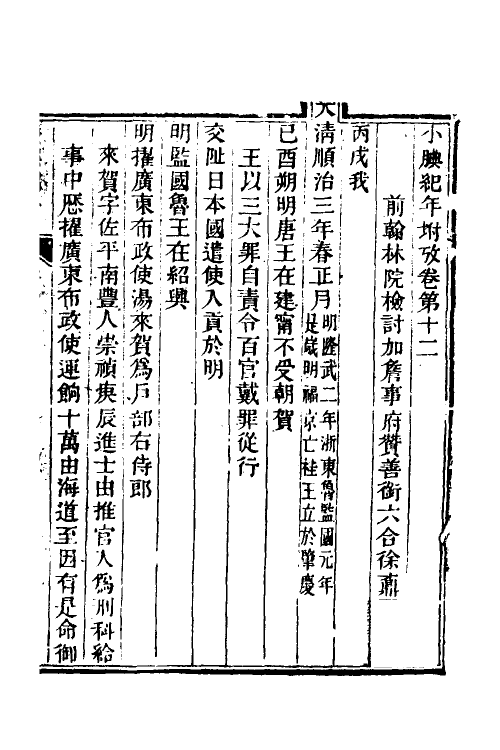 小腆紀年附攷卷第十二
前翰林院檢討加詹事府贊善銜六合徐鼒
丙戌我
大清順治三年春正月明隆武二年浙東魯監國元年是歲明福京亡桂王立於肇慶
己酉朔明唐王在建甯不受朝賀
王以三大罪自責令百官戴罪從行
交阯日本國遣使入貢於明
明監國魯王在紹興
明擢廣東布政使湯來賀爲戶部右侍郎
來賀字佐平南豐人崇禎庚辰進士由推官入爲刑科給
事中歷擢廣東布政使運餉十萬由海道至因有是命御